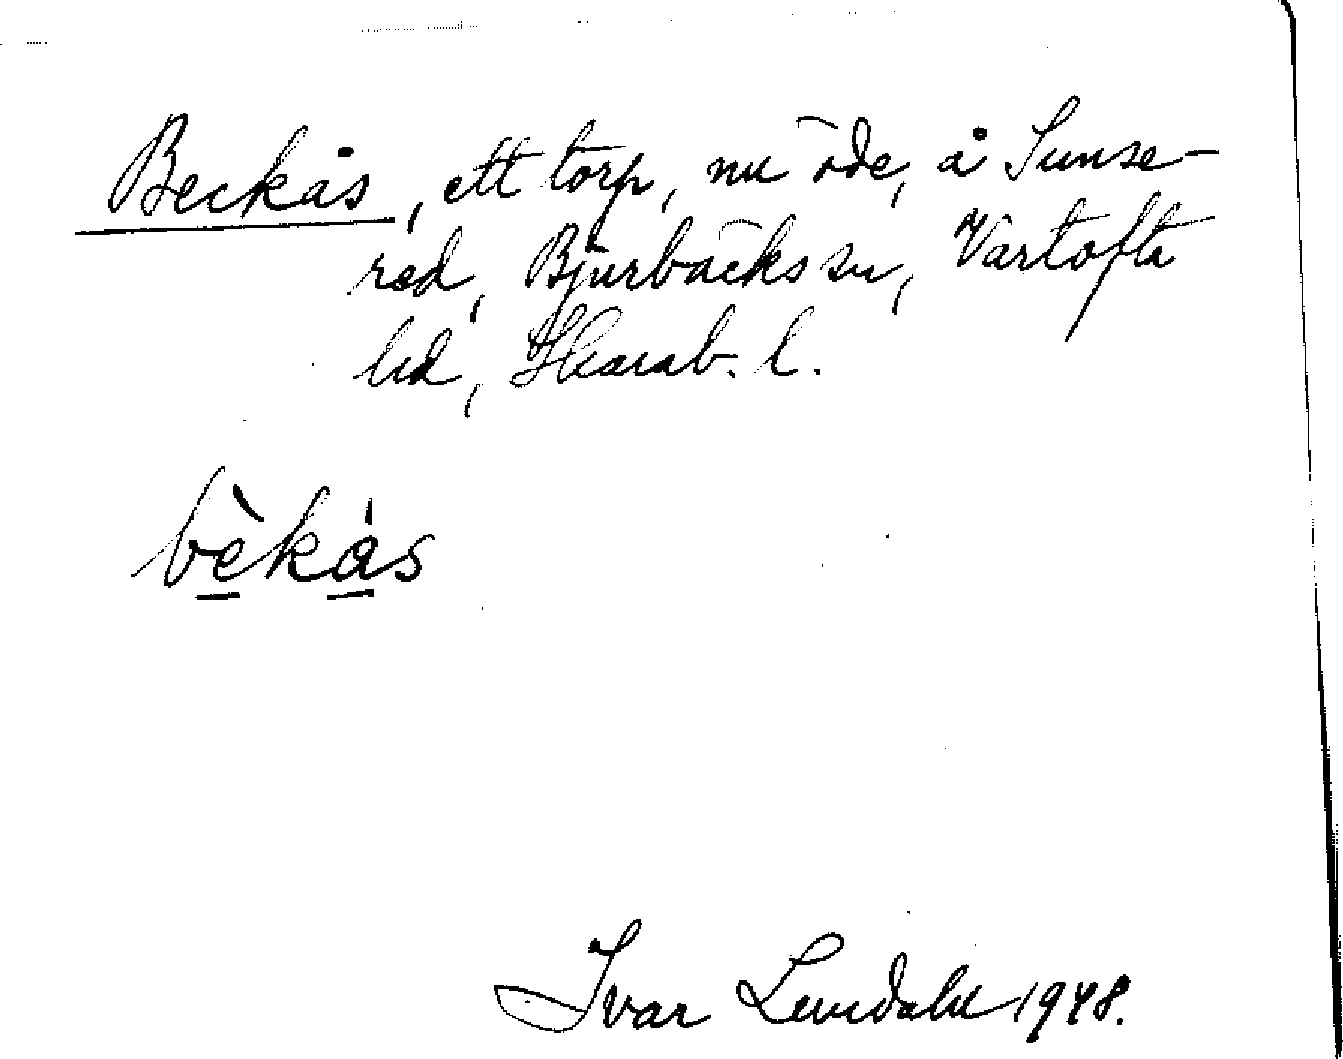 Beckås, ett torp, nu öde, å Sunse-
red, Bjurbäcks sn, Vartofta
hd, Skarab. l.
bèkås
Ivar Lundahl 1948.